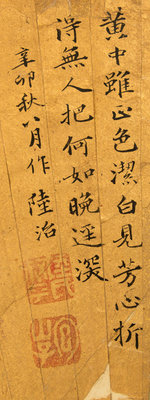 黃中雖正色潔白見芳心折
得無人把何如晚逕深
辛卯秋八月作 陸治